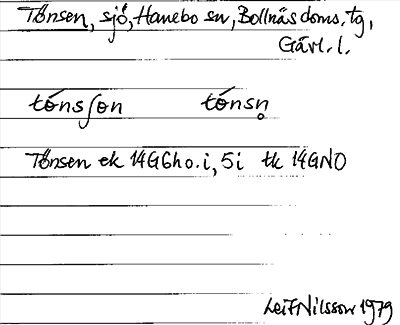 Tönsen, sjö, Hanebo sn, Bollnäs doms. tg,
Gävl. l.
tónsʃøn tónsn̥
Tönsen ek 14G6h o. i, 5i tk 14GNO
Leif Nilsson 1979